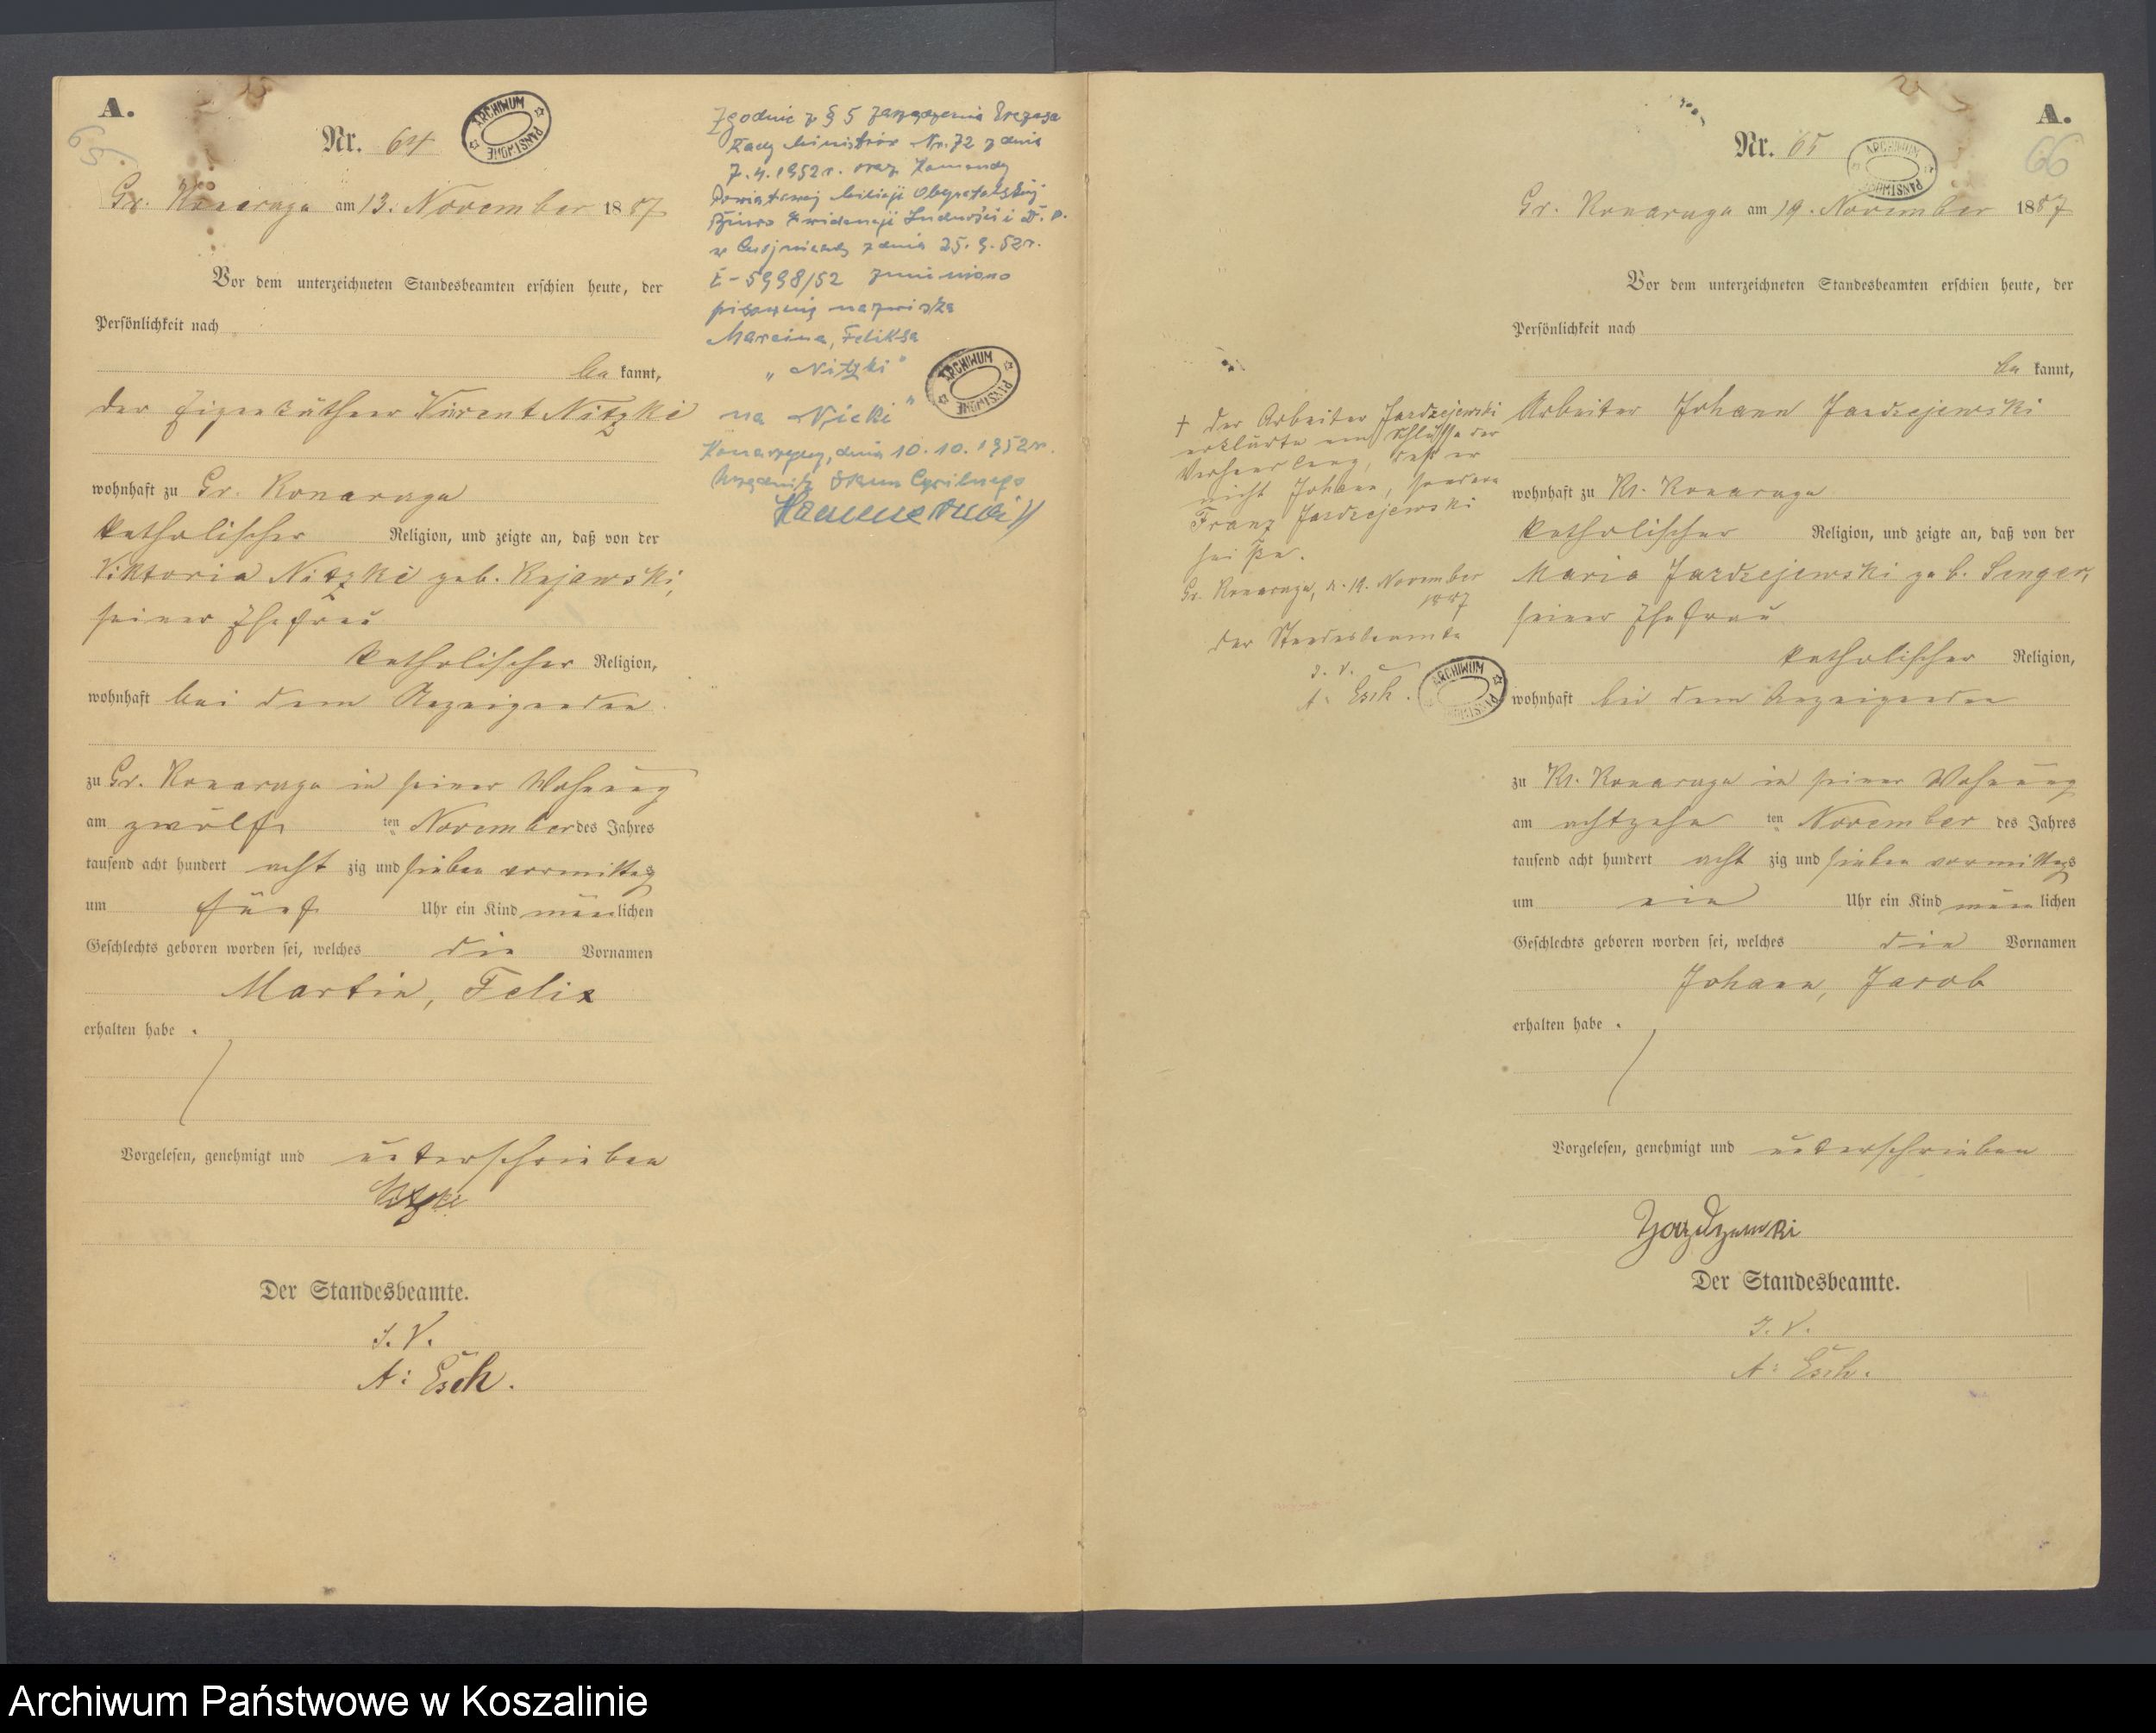 A.
65
Nr. 64
ARCHIWUM PAŃSTWOWE
Gr. Konarzyn am 13. November 1887
Vor dem unterzeichneten Standesbeamten erschien heute, der
Persönlichkeit nach
be kannt,
der Eigenkäthner Vincent Nitzki
wohnhaft zu Gr. Konarzyn
katholischer Religion, und zeigte an, daß von der
Viktoria Nitzki geb. Kajewski,
seiner Ehefrau
katholischer Religion,
wohnhaft bei dem Anzeigenden
zu Gr. Konarzyn in seiner Wohnung
am zwölf ten November des Jahres
tausend acht hundert acht zig und sieben vormittag
um fünf Uhr ein Kind männlichen
Geschlechts geboren worden sei, welches die Vornamen
Martin, Felix
erhalten habe.
Vorgelesen, genehmigt und unterschrieben
Nitzki
Der Standesbeamte.
I. V.
A: Esch.
Zgodnie z § 5 zarządzenia Prezesa
Rady Ministrów Nr. 72 z dnia
7.4.1952r. oraz Komendy
Powiatowej Milicji Obywatelskiej
Biuro Ewidencji Ludności i D. O.
w z dnia 25.9.52r.
E-5998/52 zmieniono
pisownię nazwiska
Marcina, Feliksa
„Nitzki"
na „Nicki"
ARCHIWUM PAŃSTWOWE
Konarzyny, dnia 10.10.1952r.
Urzędnik Stanu Cywilnego
A.
66
Nr. 65
ARCHIWUM PAŃSTWOWE
Gr. Konarzyn am 19. November 1887
Vor dem unterzeichneten Standesbeamten erschien heute, der
Persönlichkeit nach
be kannt,
Arbeiter Johann Jazdzejewski
wohnhaft zu Kl. Konarzyn
katholischer Religion, und zeigte an, daß von der
Maria Jazdzejewski geb. Senger,
seiner Ehefrau
katholischer Religion,
wohnhaft bei dem Anzeigenden
zu Kl. Konarzyn in seiner Wohnung
am achtzehn ten November des Jahres
tausend acht hundert acht zig und sieben vormittags
um ein Uhr ein Kind männlichen
Geschlechts geboren worden sei, welches die Vornamen
Johann, Jacob
erhalten habe.
Vorgelesen, genehmigt und unterschrieben
Der Standesbeamte.
I. V.
A: Esch.
† Der Arbeiter Jazdzejewski
erklärte am Schlusse der
Verhandlung, daß er
nicht Johann, sondern
Franz Jazdzejewski
heiße.
Gr. Konarzyn, d. 19. November
1887
Der Standesbeamte
I. V.
A: Esch.
ARCHIWUM PAŃSTWOWE
Archiwum Państwowe w Koszalinie